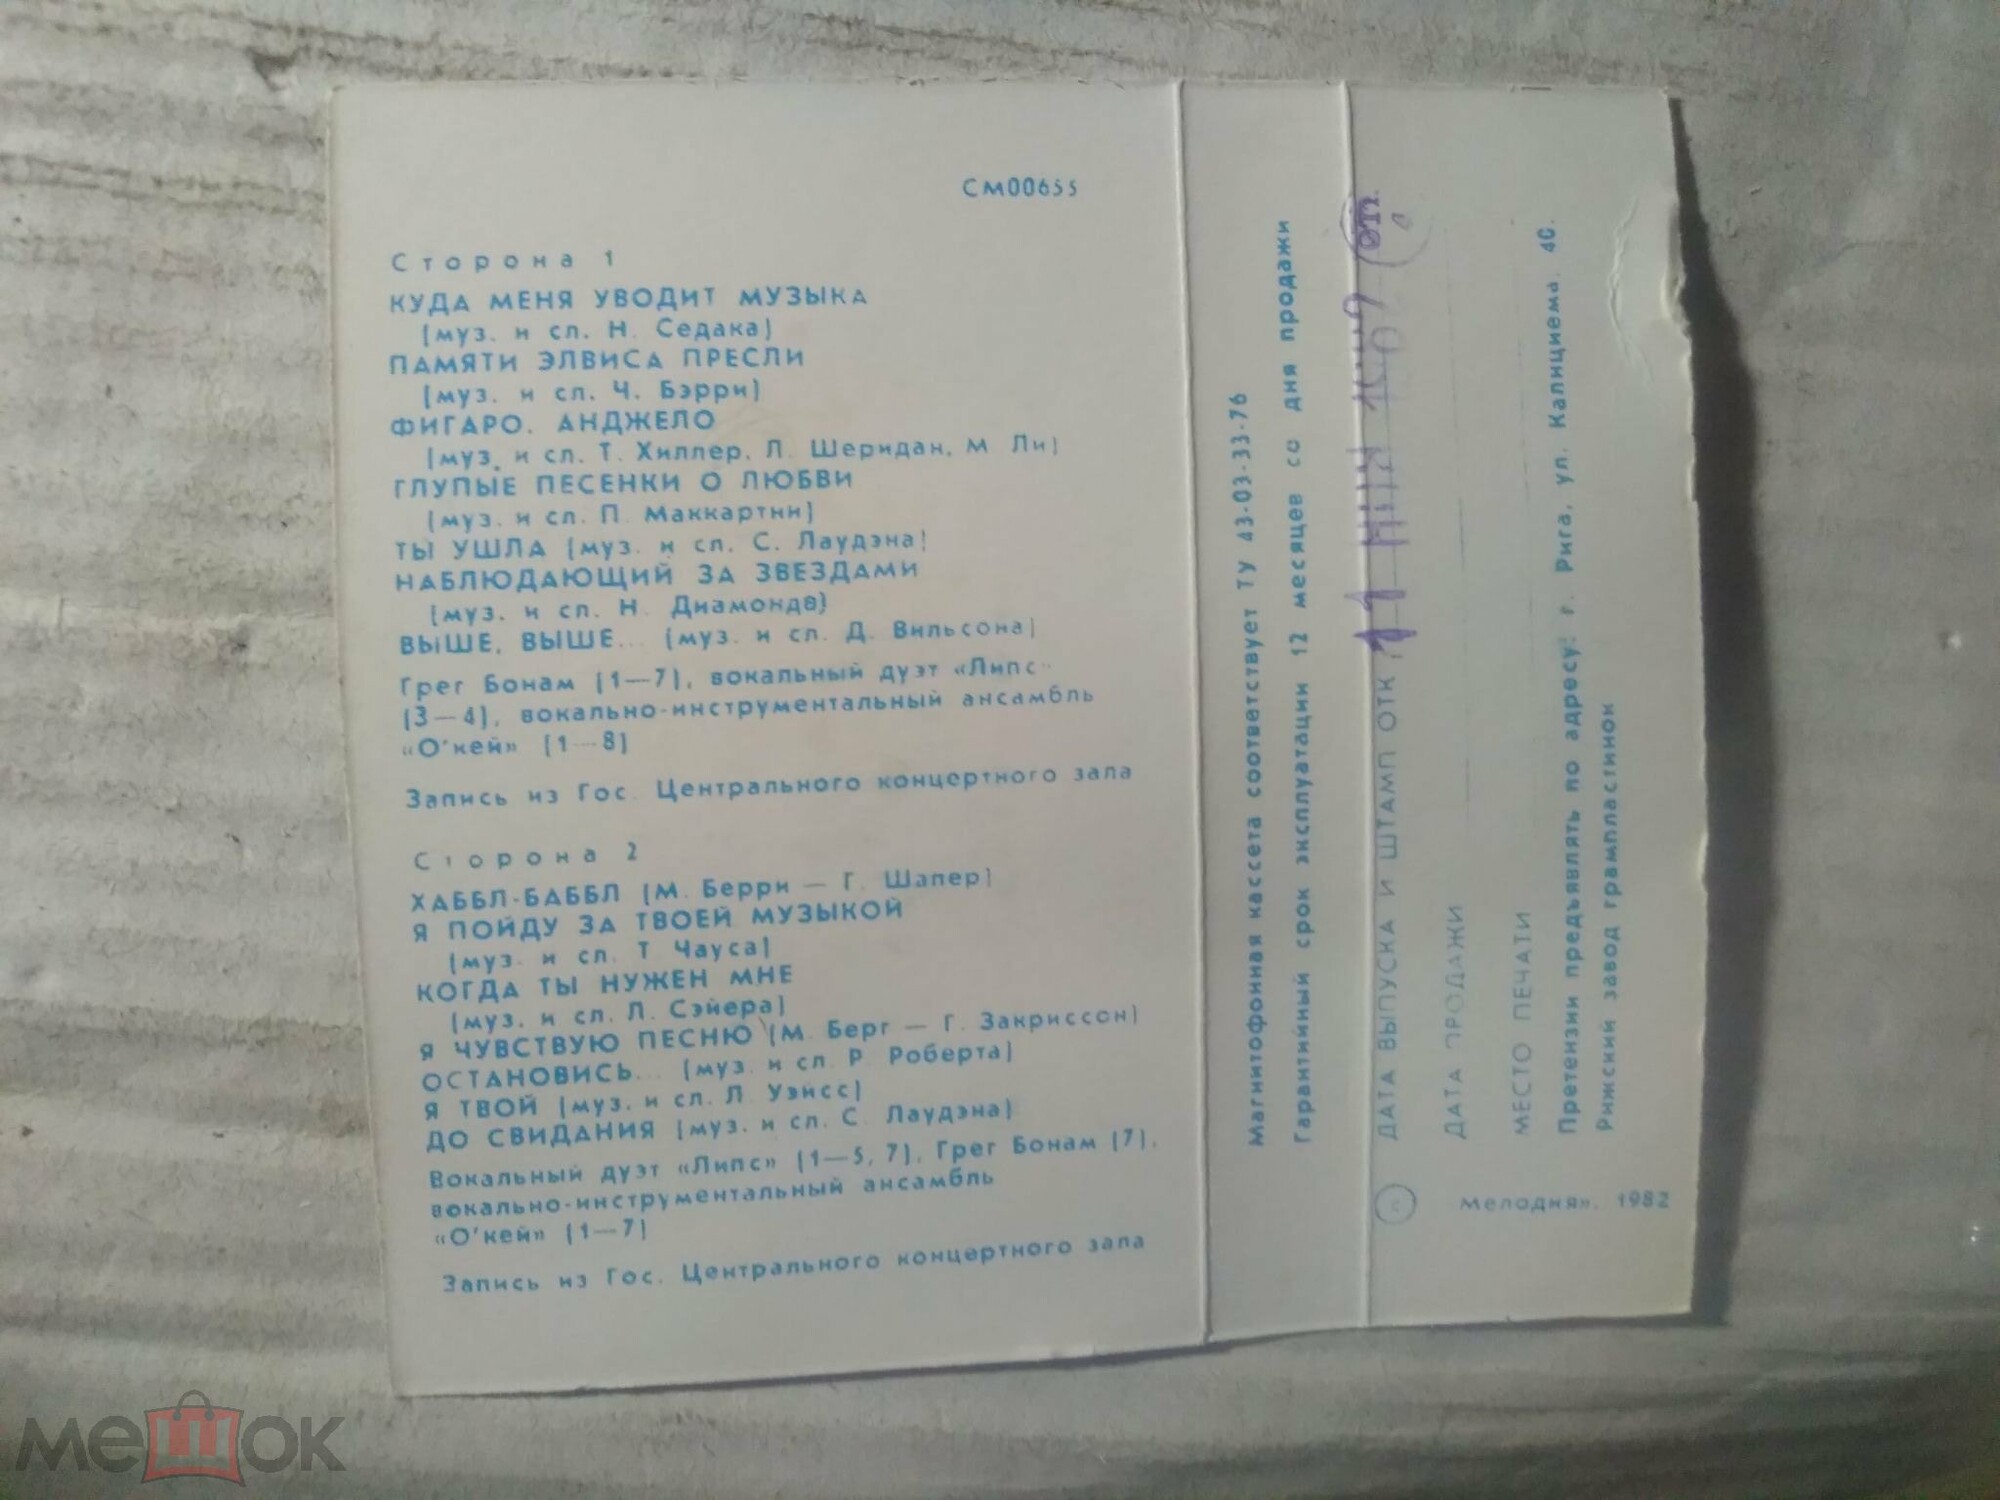 СМ00655
Сторона 1
КУДА МЕНЯ УВОДИТ МУЗЫКА
(муз. и сл. Н. Седака)
ПАМЯТИ ЭЛВИСА ПРЕСЛИ
(муз. и сл. Ч. Бэрри)
ФИГАРО. АНДЖЕЛО
(муз. и сл. Т. Хиллер, Л. Шеридан, М. Ли)
ГЛУПЫЕ ПЕСЕНКИ О ЛЮБВИ
(муз. и сл. П. Маккартни)
ТЫ УШЛА (муз. и сл. С. Лаудэна)
НАБЛЮДАЮЩИЙ ЗА ЗВЕЗДАМИ
(муз. и сл. Н. Диамонда)
ВЫШЕ, ВЫШЕ... (муз. и сл. Д. Вильсона)
Грег Бонам (1—7), вокальный дуэт «Липс»
(3—4), вокально-инструментальный ансамбль
«О'кей» (1—8)
Запись из Гос. Центрального концертного зала
Сторона 2
ХАББЛ-БАББЛ (М. Берри — Г. Шапер)
Я ПОЙДУ ЗА ТВОЕЙ МУЗЫКОЙ
(муз. и сл. Т. Чауса)
КОГДА ТЫ НУЖЕН МНЕ
(муз. и сл. Л. Сэйера)
Я ЧУВСТВУЮ ПЕСНЮ (М. Берг — Г. Закриссон)
ОСТАНОВИСЬ... (муз. и сл. Р. Роберта)
Я ТВОЙ (муз. и сл. Л. Уэйсс)
ДО СВИДАНИЯ (муз. и сл. С. Лаудэна)
Вокальный дуэт «Липс» (1—5, 7), Грег Бонам (7),
вокально-инструментальный ансамбль
«О'кей» (1—7)
Запись из Гос. Центрального концертного зала
Магнитофонная кассета соответствует ТУ 43-03-33-76
Гарантийный срок эксплуатации 12 месяцев со дня продажи
ДАТА ВЫПУСКА И ШТАМП ОТК
ДАТА ПРОДАЖИ
МЕСТО ПЕЧАТИ
Претензии предъявлять по адресу: г. Рига, ул. Калнциема 40.
Рижский завод грампластинок
Мелодия», 1982
мешок